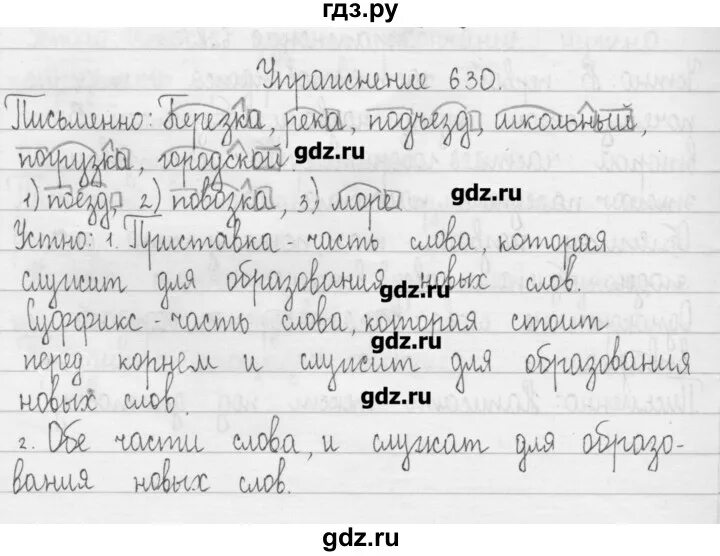 гдз.ру
Упражнение 630.
Письменно: Берёзка, река, подъезд, школьный,
погрузка, городской.
gdz.ru
1) поезд, 2) повозка, 3) море
gdz.ru
Устно: 1. Приставка - часть слова, которая
служит для образования новых слов.
gdz.ru
Суффикс - часть слова, которая стоит
gdz.ru
перед корнем и служит для образования
новых слов.
gdz.ru
2. Обе части слова, и служат для образо-
вания новых слов.
gdz.ru